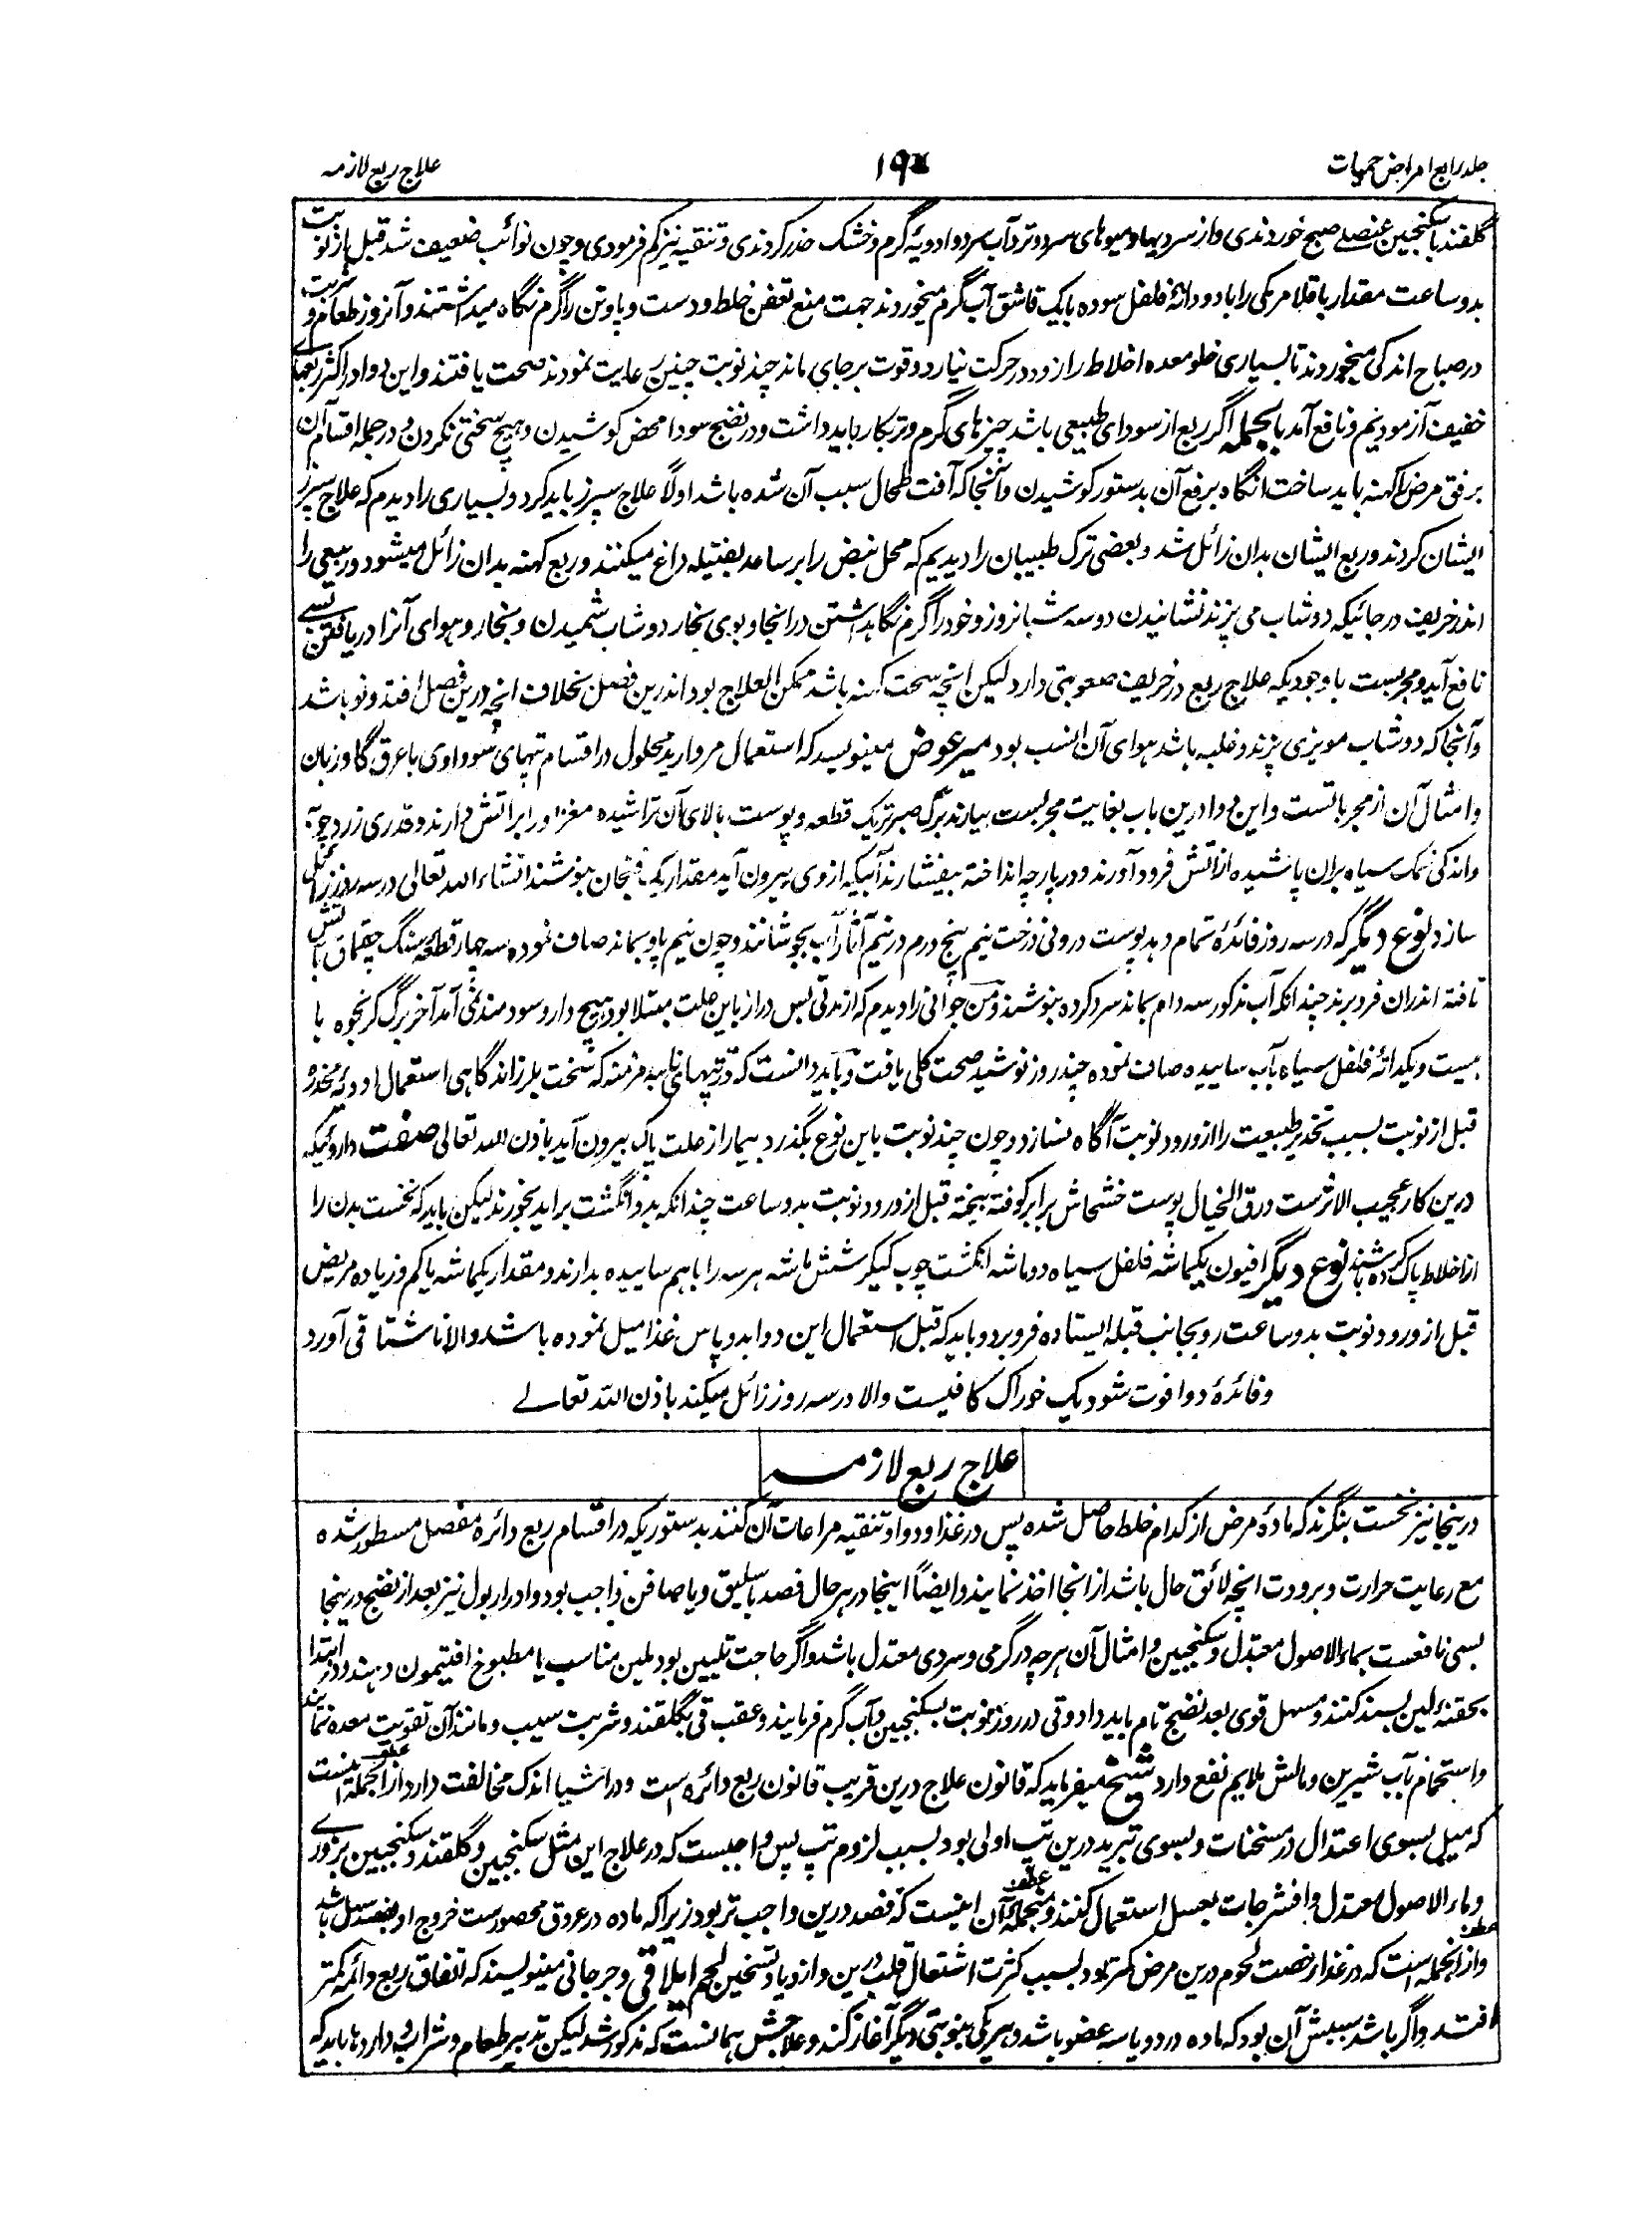 جلد رابع امراض حمیات
۱۹۴
علاج ربع لازمه
گلقند با سکنجبین عنصلے صبح خوردندی و از سردیها و میوهای سرد و تر و آب سرد و ادویۂ گرم و خشک حذر کردندی و تنقیه نیز کم فرمودی و چون نوائب ضعیف شد قبل از نوبت
بدو ساعت مقدار باقلا مرمکی را با دو دانۂ فلفل سوده با یک قاشق آب گرم میخوردند جهت منع تعفن خلط و دست و پا و تن را گرم نگاه میداشتند و آنروز طعام و شربت
در صباح اندکی میخوردند تا بسیاری خلو معده اخلاط را زود در حرکت نیارد و قوت بر جای ماند چند نوبت چنین رعایت نمودند صحت یافتند و این دوا در اکثر ربعهاے
خفیف آزمودیم و نافع آمد بالجمله اگر ربع از سودای طبیعی باشد چیزهای گرم و تر بکار باید داشت و در نضج سودا محض کوشیدن و هیچ سختی نکردن و در جمله اقسام آن
برفق مرض را کهنه باید ساخت انگاه برفع آن بدستور کوشیدن و آنجا که آفت طحال سبب آن شده باشد اولاً علاج سپرز باید کرد و بسیاری را دیدم که علاج سپرز
ایشان کردند و ربع ایشان بدان زائل شد و بعضی ترک طبیبان را دیدیم که محل نبض را بر ساعد بفتیله داغ میکنند و ربع کهنه بدان زائل میشود و ربیعی را
اندر خریف در جائیکه دوشاب می پزند نشانیدن دو سه شبانروز و خود را گرم نگاهداشتن در انجا و بوی بخار دوشاب شمیدن و بخار و هوای آنرا دریافتن بسے
نافع آید و مجربست باوجودیکه علاج ربع در خریف صعوبتی دارد لیکن انچه سخت کهنه باشد ممکن العلاج بود اندرین فصل بخلاف انچه درین فصل افتد و نو باشد
و آنجا که دوشاب مویزی پزند و غلبه باشد هوای آن انسب بود میر عوض مینویسد که استعمال مروارید محلول در اقسام تپهای سوداوی با عرق گاوزبان
و امثال آن از مجرباتست و این دوا درین باب بغایت مجربست بیارند برگ صبر تر یک قطعه و پوست بالای آن تراشیده مغز او را بر آتش دارند و قدری زردچوبه
و اندکی نمک سیاه بران پاشیده از آتش فرود آورند و در پارچه انداخته بیفشارند آبیکه از وی بیرون آید مقدار یک فنجان بنوشند انشاء الله تعالی در سه روز زائل
سازد نوع دیگر که در سه روز فائدۂ تمام دهد پوست درونی درخت نیم پنج درم در نیم آثار آب بجوشانند و چون نیم پاو بماند صاف نموده سه چهار قطعۂ سنگ چقماق بآتش
تافته اندران فرو برند چندانکه آب مذکور سه دام بماند سرد کرده بنوشند و من جوانی را دیدم که از مدتی بس دراز باین علت مبتلا بود و هیچ دارو سودمند نمی آمد آخر برگ کرنجوه با
بیست و یکدانۂ فلفل سیاه بآب ساییده صاف نموده چند روز نوشید صحت کلی یافت و باید دانست که در تپهای مزمنه که سخت بلرزاند گاهی استعمال ادویۂ مخدره
قبل از نوبت بسبب تخدیر طبیعت را از ورود نوبت آگاه نسازد و چون چند نوبت باین نوع بگذرد بیمار از علت پاک بیرون آید باذن الله تعالی صفت داروئیکه
درین کار عجیب الاثرست ورق الخیال پوست خشخاش برابر کوفته بیخته قبل از ورود نوبت بدو ساعت چندانکه بدو انگشت براید بخورند لیکن باید که نخست بدن را
از اخلاط پاک کرده باشند نوع دیگر افیون یکماشه فلفل سیاه دو ماشه انگشت چوب کیکر شش ماشه هر سه را باهم ساییده بدارند و مقدار یکماشه یا کم و زیاده مریض
قبل از ورود نوبت بدو ساعت رو بجانب قبله ایستاده فرو برد و باید که قبل استعمال این دوا بدو پاس غذا میل نموده باشد والا ناشتا قی آورد
و فائدۂ دوا فوت شود یک خوراک کافیست والا در سه روز زائل میکند باذن الله تعالے
علاج ربع لازمه
درینجا نیز نخست بنگرند که مادۂ مرض از کدام خلط حاصل شده پس در غذا و دوا و تنقیه مراعات آن کنند بدستوریکه در اقسام ربع دائره مفصل مسطور شده
مع رعایت حرارت و برودت انچه لائق حال باشد از انجا اخذ نمایند و ایضاً اینجا در هر حال فصد باسلیق و یا صافن واجب بود و ادرار بول نیز بعد از نضج درینجا
بسی نافعست بماء الاصول معتدل و سکنجبین و امثال آن هرچه در گرمی و سردی معتدل باشد و اگر حاجت تلیین بود بملین مناسب یا مطبوخ افتیمون دهند و در ابتدا
بحقنۂ لین بسند کنند و مسهل قوی بعد نضج تام باید داد و قی در روز نوبت بسکنجبین و آب گرم فرمایند و عقب قی بگلقند و شربت سیب و مانند آن تقویت معده نمایند
و استحمام بآب شیرین و مالش ملایم نفع دارد شیخ میفرماید که قانون علاج درین قریب قانون ربع دائره است و در اشیا اندک مخالفت دارد از انجمله اینست
که میل بسوی اعتدال در مسخنات و بسوی تبرید درین تپ اولی بود بسبب لزوم تپ پس واجبست که در علاج این مثل سکنجبین و گلقند و سکنجبین بزورے
و ماء الاصول معتدل و افشرجات بعسل استعمال کنند و منجملۂ آن اینست که فصد درین واجب تر بود زیرا که ماده در عروق محصورست خروج او بفصد سهل باشد
و از انجمله اینست که در غذا رخصت لحوم درین مرض کمتر بود بسبب کثرت اشتعال قلب درین و ازدیاد تسخین لحم ایلاقی و جرجانی مینویسند که اتفاق ربع دائمه کمتر
افتد و اگر باشد سببش آن بود که ماده در دو یا سه عضو باشد و هر یکی بنوبتی دیگر آغاز کند و علاجش همانست که مذکور شد لیکن تدبیر طعام و شراب و داروها باید که